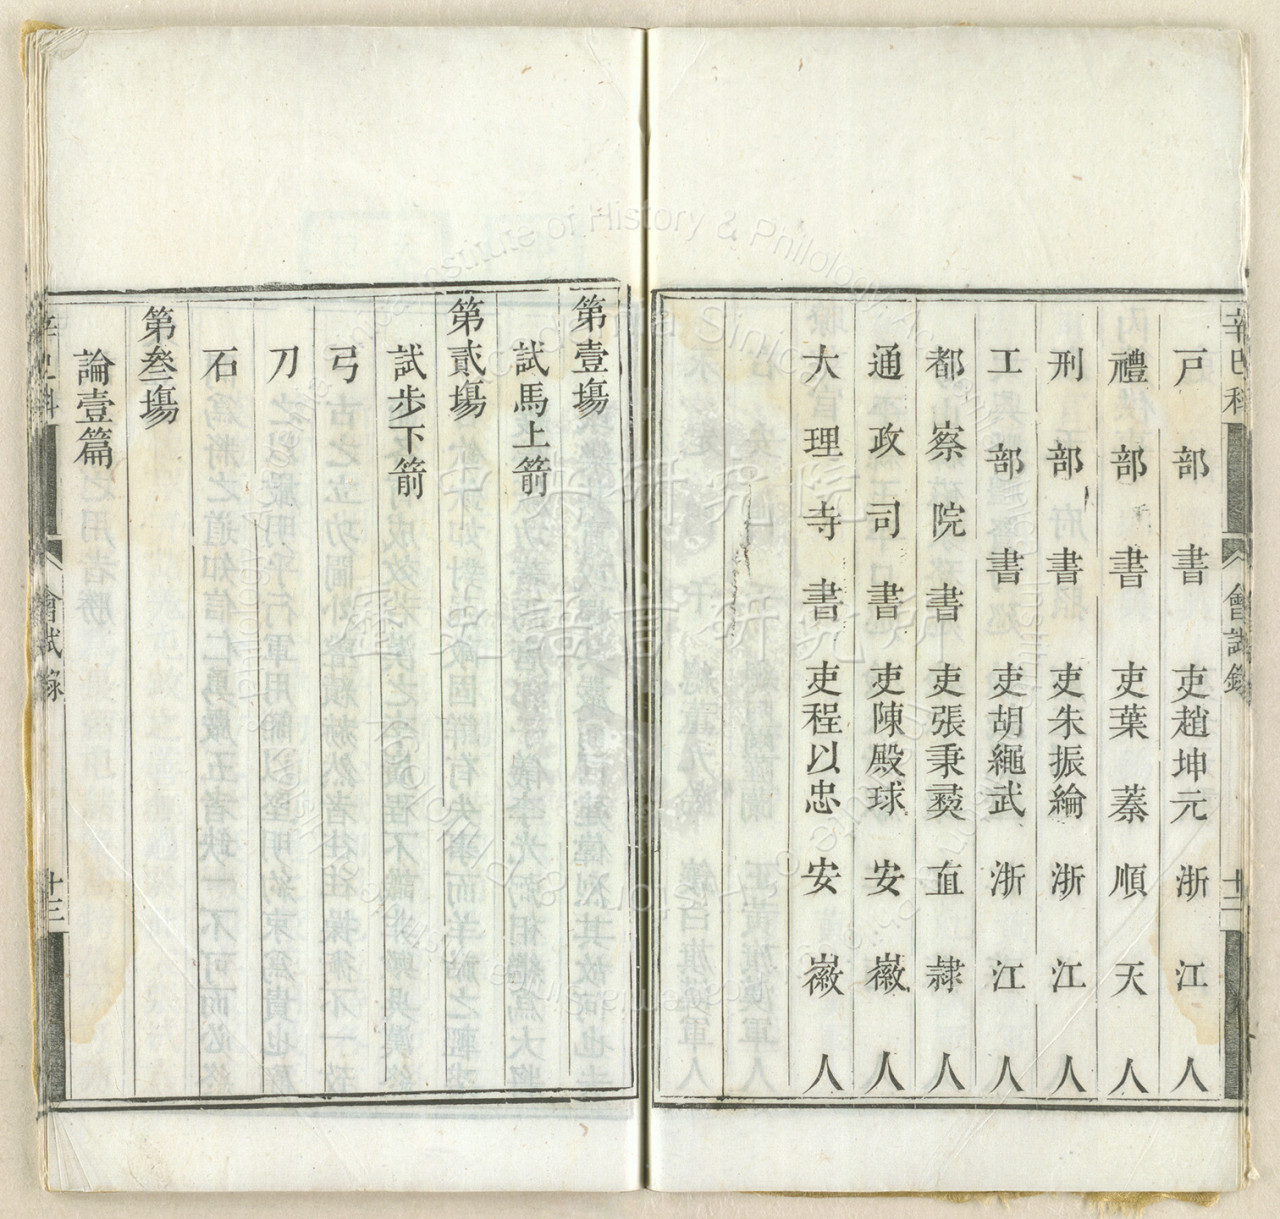 辛巳科 會試錄 十二
戶部書吏趙坤元浙江人
禮部書吏葉蓁順天人
刑部書吏朱振綸浙江人
工部書吏胡繩武浙江人
都察院書吏張秉彛直隸人
通政司書吏陳殿球安徽人
大理寺書吏程以忠安徽人
第壹塲
試馬上箭
第貳塲
試步下箭
弓
刀
石
第叁塲
論壹篇
辛巳科 會試錄 十三
中央研究院
歷史語言研究所
Institute of History & Philology
Academia Sinica